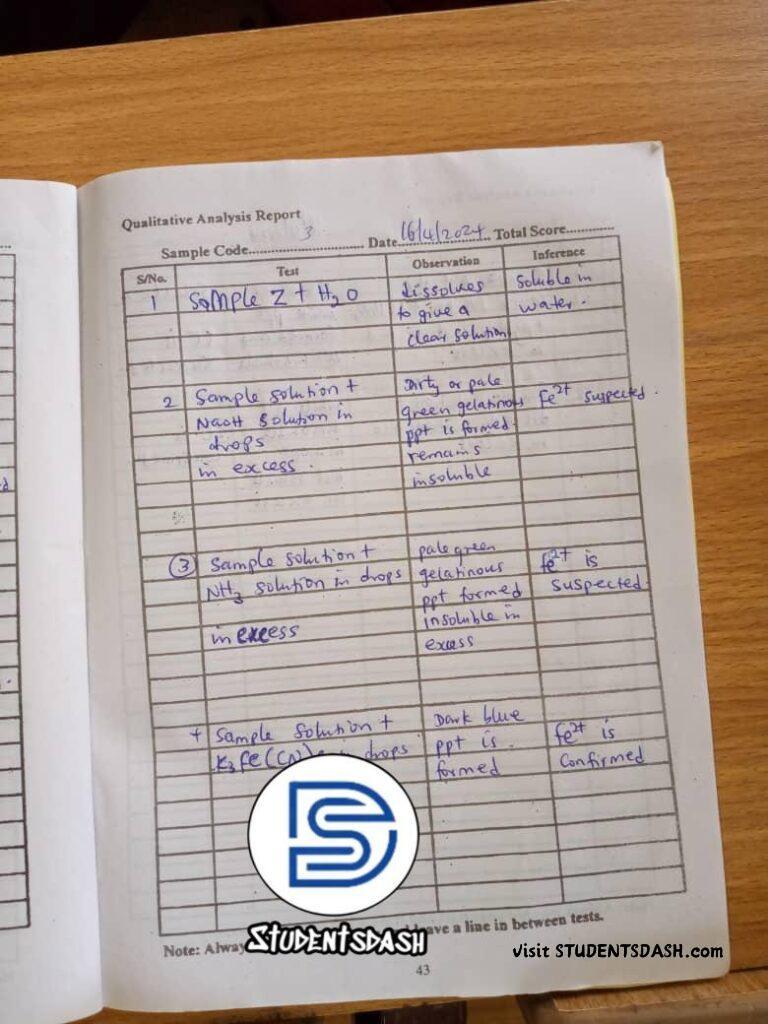 Qualitative Analysis Report
Sample Code....3.... Date 16/4/2024 Total Score............
S/No. Test Observation Inference
1 Sample Z + H2O dissolves soluble in
to give a water.
clear solution
2 Sample solution + Dirty or pale
NaOH solution in green gelatinous Fe2+ suspected.
drops ppt is formed
in excess. remains
insoluble
3 Sample solution + pale green Fe2+ is
NH3 solution in drops gelatinous suspected.
ppt formed
in excess insoluble in
excess
4 Sample solution + Dark blue
K3Fe(CN) drops ppt is Fe2+ is
formed confirmed
STUDENTSDASH
Note: leave a line in between tests.
visit STUDENTSDASH.com
43